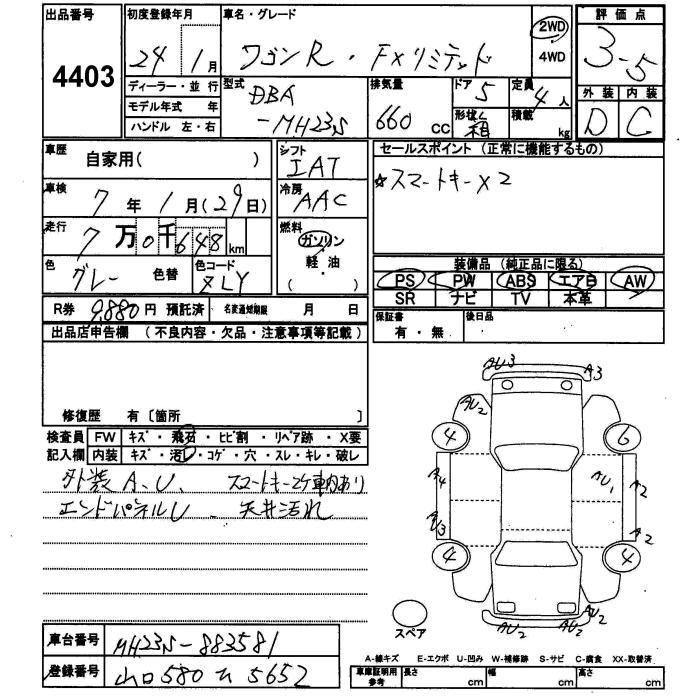 出品番号 4403
初度登録年月 24 1 月
ディーラー・並 行
モデル年式 年
ハンドル 左・右
車名・グレード
ワゴンR・FXリミテッド
2WD
4WD
型式 DBA
-MH23S
排気量 660 cc
ドア 5
形状 箱
定員 4 人
積載 kg
評 価 点
3-5
外 装 内 装
D C
車歴
自家用( )
車検 7 年 1 月(29日)
走行 7 万 0 千 648 km
色 グレー 色替
色コード ZLY
R券 9,880 円 預託済 名変通知期限 月 日
シフト IAT
冷房 AAC
燃料
ガソリン
軽・油
( )
セールスポイント (正常に機能するもの)
☆スマートキー×2
装備品 (純正品に限る)
PS PW ABS エアB AW
SR ナビ TV 本革
保証書 有・無
後日品
出品店申告欄 (不良内容・欠品・注意事項等記載)
修復歴 有〔箇所 〕
検査員 FW キズ・飛石・ヒビ割・リペア跡・X要
記入欄 内装 キズ・汚レ・コゲ・穴・スレ・キレ・破レ
外装 A.U. スマートキー2ケ車内あり
エンドパネルU 天井汚れ
AU3
A3
AU2
4
6
A4
AU1
A2
AU3
A2
4
4
AU2
AU2
スペア
車台番号 MH23S-883581
登録番号 山口580 ..5652
A-線キズ E-エクボ U-凹み W-補修跡 S-サビ C-腐食 XX-取替済
車庫証明用参考 長さ cm 幅 cm 高さ cm